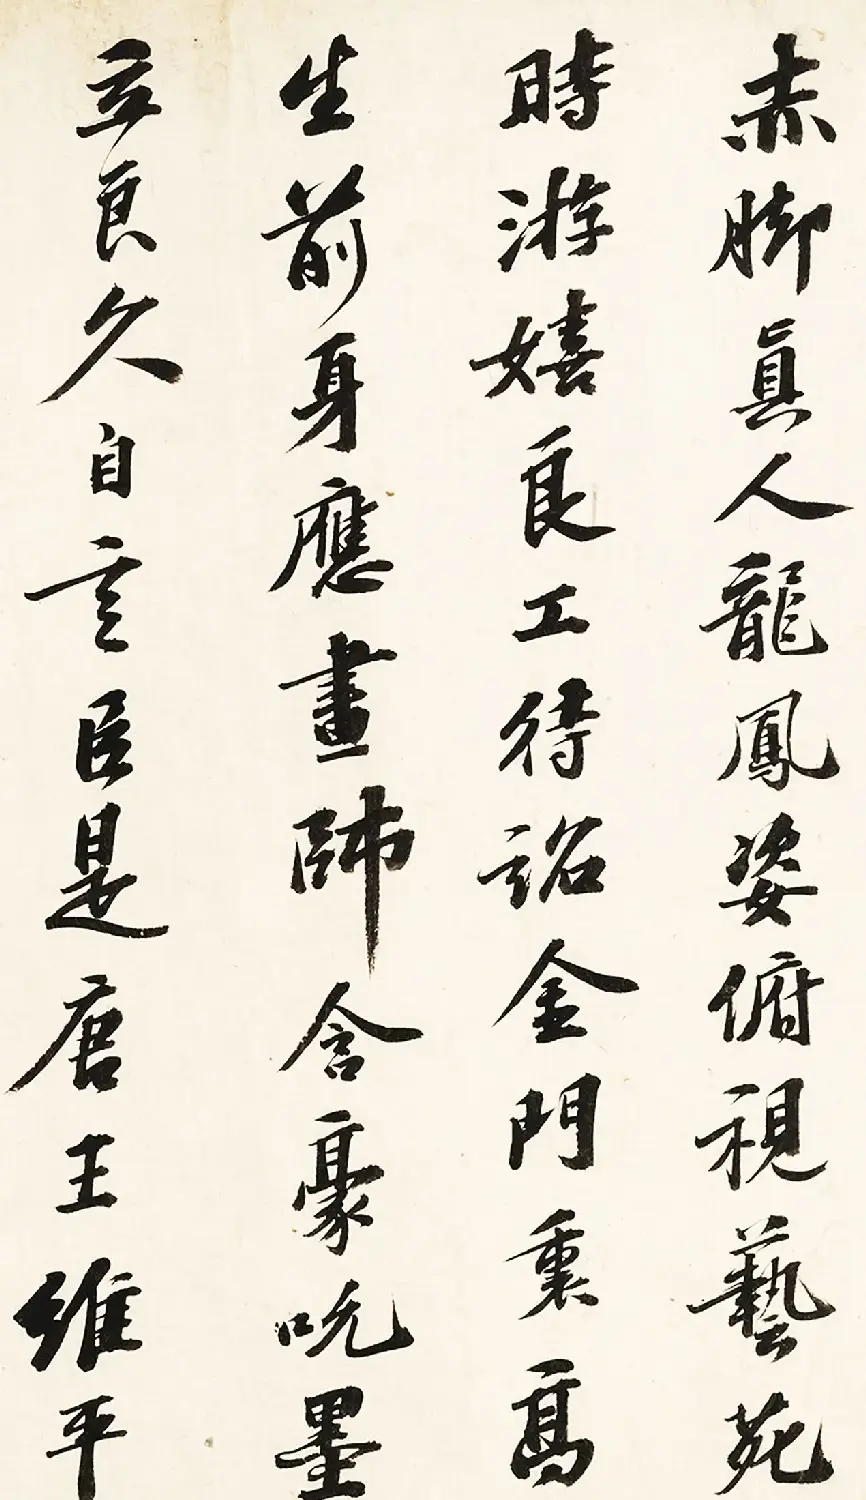 赤脚真人龍鳳姿俯視藝苑
時游嬉良工待詔金門裏高
生前身應畫師含豪吮墨
立良久自言臣是唐王維平